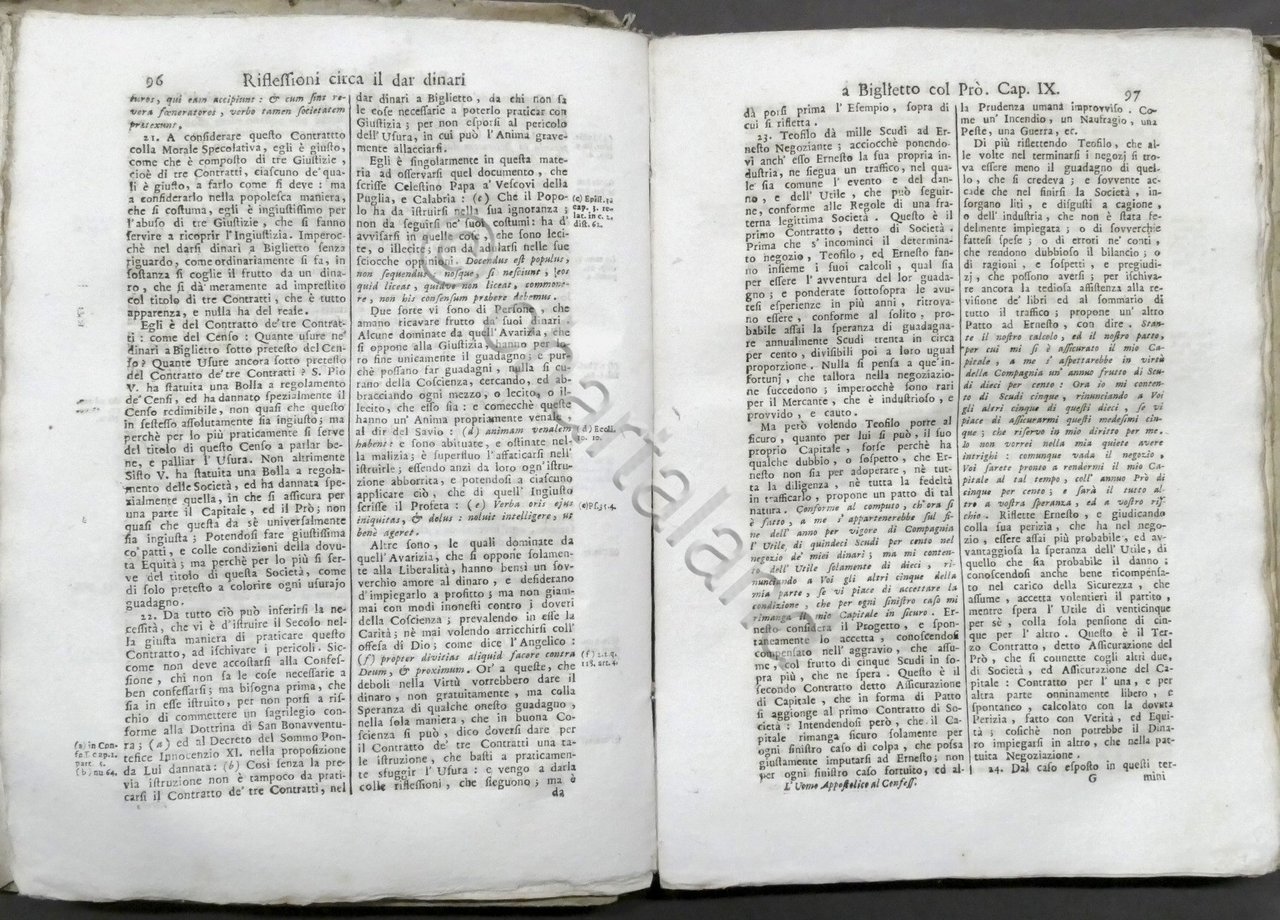 96 Riflessioni circa il dar dinari
turos, qui eam accipiunt: & cum sint re-
vera fœneratores, verbo tamen societatem
pratexunt,
21. A considerare questo Contrattto
colla Morale Specolativa, egli è giusto,
come che è composto di tre Giustizie,
cioè di tre Contratti, ciascuno de' qua-
li è giusto, a farlo come si deve: ma
a considerarlo nella popolesca maniera,
che si costuma, egli è ingiustissimo per
l'abuso di tre Giustizie, che si fanno
servire a ricoprir l'Ingiustizia. Imperoc-
chè nel darsi dinari a Biglietto senza
riguardo, come ordinariamente si fa, in
sostanza si coglie il frutto da un dina-
ro, che si dà meramente ad imprestito
col titolo di tre Contratti, che è tutto
apparenza, e nulla ha del reale.
Egli è del Contratto de' tre Contrat-
ti: come del Censo: Quante usure ne'
dinari a Biglietto sotto pretesto del Cen-
so? Quante Usure ancora sotto pretesto
del Contratto de' tre Contratti? S. Pio
V. ha statuita una Bolla a regolamento
de' Censi, ed ha dannato spezialmente il
Censo redimibile, non quasi che questo
in sestesso assolutamente sia ingiusto; ma
perchè per lo più praticamente si serve
del titolo di questo Censo a parlar be-
ne, e palliar l'Usura. Non altrimente
Sisto V. ha statuita una Bolla a regola-
mento delle Società, ed ha dannata spe-
zialmente quella, in che si assicura per
una parte il Capitale, ed il Prò; non
quasi che questa da sè universalmente
sia ingiusta; Potendosi fare giustissima
co' patti, e colle condizioni della dovu-
ta Equità; ma perchè per lo più si ser-
ve del titolo di questa Società, come
di solo pretesto a colorire ogni usurajo
guadagno.
22. Da tutto ciò può inferirsi la ne-
cessità, che vi è d'istruire il Secolo nel-
la giusta maniera di praticare questo
Contratto, ad ischivare i pericoli. Sic-
come non deve accostarsi alla Confes-
sione, chi non sa le cose necessarie a
ben confessarsi; ma bisogna prima, che
sia in esse istruito, per non porsi a ris-
chio di commettere un sagrilegio con-
forme alla Dottrina di San Bonaventu-
ra; (a) ed al Decreto del Sommo Pon-
tefice Innocenzio XI. nella proposizione
da Lui dannata: (b) Così senza la pre-
via istruzione non è tampoco da prati-
carsi il Contratto de' tre Contratti, nel
(a) in Con-
fess. cap. 2.
part. 1.
(b) nu 64.
dar dinari a Biglietto, da chi non sa
le cose necessarie a poterlo praticar con
Giustizia; per non esporsi al pericolo
dell'Usura, in cui può l'Anima grave-
mente allacciarsi.
Egli è singolarmente in questa mate-
ria ad osservarsi quel documento, che
scrisse Celestino Papa a' Vescovi della
Puglia, e Calabria: (c) Che il Popo-
lo ha da istruirsi nella sua ignoranza;
non da seguirsi ne' suoi costumi: ha d'
avvisarsi in quelle cose, che sono leci-
te, o illecite; non da adularsi nelle sue
sciocche oppinioni. Docendus est populus,
non sequendus: nosque, si nesciunt, eos
quid liceat, quidve non liceat, commone-
re, non his consensum præbere debemus.
Due sorte vi sono di Persone, che
amano ricavare frutto da' suoi dinari.
Alcune dominate da quell'Avarizia, che
si oppone alla Giustizia, hanno per as-
tro fine unicamente il guadagno; e pur-
chè possano far guadagni, nulla si cu-
rano della Coscienza, cercando, ed ab-
bracciando ogni mezzo, o lecito, o il-
lecito, che esso sia: e comecchè queste
hanno un'Anima propriamente venale,
al dir del Savio: (d) animam venalem
habent: e sono abituate, e ostinate nel-
la malizia; è superfluo l'affaticarsi nell'
istruirle; essendo anzi da loro ogn'istru-
zione abborrita, e potendosi a ciascuno
applicare ciò, che di quell'Ingiusto
scrisse il Profeta: (e) Verba oris ejus
iniquitas, & dolus: noluit intelligere, ut
benè ageret.
Altre sono, le quali dominate da
quell'Avarizia, che si oppone solamen-
te alla Liberalità, hanno bensì un sov-
verchio amore al dinaro, e desiderano
d'impiegarlo a profitto; ma non giam-
mai con modi inonesti contro i doveri
della Coscienza; prevalendo in esse la
Carità; nè mai volendo arricchirsi coll'
offesa di Dio; come dice l'Angelico:
(f) propter divitias aliquid facere contra
Deum, & proximum. Or' a queste, che
deboli nella Virtù vorrebbero dare il
dinaro, non gratuitamente, ma colla
Speranza di qualche onesto guadagno,
nella sola maniera, che in buona Co-
scienza si può, dico doversi dare per
il Contratto de' tre Contratti una ta-
le istruzione, che basti a praticamen-
te sfuggir l'Usura: e vengo a darla
colle riflessioni, che sieguono; ma è
da
(c) Epist. 3.
cap. 3. re-
lat. in c. 2.
dist. 62.
(d) Eccli.
10. 10.
(e) Ps. 35. 4.
(f) 2. 2. q.
118. art. 4.
a Biglietto col Prò. Cap. IX. 97
dà porsi prima l'Esempio, sopra di
cui si rifletta.
23. Teofilo dà mille Scudi ad Er-
nesto Negoziante; acciocchè ponendo-
vi anch' esso Ernesto la sua propria in-
dustria, ne siegua un traffico, nel qua-
le sia comune l'evento e del dan-
no, e dell' Utile, che può seguir-
ne, conforme alle Regole di una fra-
terna legittima Società. Questo è il
primo Contratto, detto di Società.
Prima che s'incominci il determina-
to negozio, Teofilo, ed Ernesto fan-
no insieme i suoi calcoli, qual sia
per essere l'avventura del lor guada-
gno; e ponderate sottosopra le avu-
te esperienze in più anni, ritrova-
no essere, conforme al solito, pro-
babile assai la speranza di guadagna-
re annualmente Scudi trenta in circa
per cento, divisibili poi a loro ugual
proporzione. Nulla si pensa a que'in-
fortunj, che tallora nella negoziazio-
ne succedono; imperocchè sono rari
per il Mercante, che è industrioso, e
provvido, e cauto.
Ma però volendo Teofilo porre al
sicuro, quanto per lui si può, il suo
proprio Capitale, forse perchè ha
qualche dubbio, o sospetto, che Er-
nesto non sia per adoperare, nè tut-
ta la diligenza, nè tutta la fedeltà
in trafficarlo, propone un patto di tal
natura. Conforme al computo, ch'ora si
è fatto, a me s'appartenerebbe sul fi-
ne dell' anno per vigore di Compagnia
l'Utile di quindeci Scudi per cento nel
negozio de' miei dinari; ma mi conten-
to dell' Utile solamente di dieci, ri-
nunciando a Voi gli altri cinque della
mia parte, se vi piace di accettare la
condizione, che per ogni sinistro caso mi
rimanga il mio Capitale in sicuro. Er-
nesto considera il Progetto, e spon-
taneamente lo accetta, conoscendosi
compensato nell'aggravio, che assu-
me, col frutto di cinque Scudi in so-
pra più, che ne spera. Questo è il
secondo Contratto detto Assicurazione
di Capitale, che in forma di Patto
si aggionge al primo Contratto di So-
cietà: Intendendosi però, che il Ca-
pitale rimanga sicuro solamente per
ogni sinistro caso di colpa, che possa
giustamente imputarsi ad Ernesto; non
per ogni sinistro caso fortuito, ed al-
L'Uomo Appostolico al Confess.
la Prudenza umana improvviso. Co-
me un' Incendio, un Naufragio, una
Peste, una Guerra, ec.
Di più riflettendo Teofilo, che al-
le volte nel terminarsi i negozj si tro-
va essere meno il guadagno di quel-
lo, che si credeva; e sovvente ac-
cade che nel finirsi la Società, in-
sorgano liti, e disgusti a cagione,
o dell'industria, che non è stata fe-
delmente impiegata; o di sovverchie
fattesi spese; o di errori ne' conti,
che rendono dubbioso il bilancio; o
di ragioni, e sospetti, e pregiudi-
zj, che possono aversi; per ischiva-
re ancora la tediosa assistenza alla re-
visione de' libri ed al sommario di
tutto il traffico; propone un' altro
Patto ad Ernesto, con dire. Stan-
te il nostro calcolo, ed il nostro patto,
per cui mi si è assicurato il mio Ca-
pitale, a me s'aspettarebbe in virtù
della Compagnia un' annuo frutto di Scu-
di dieci per cento: Ora io mi conten-
to di Scudi cinque, rinunciando a Voi
gli altri cinque di questi dieci, se vi
piace di assicurarmi questi medesimi cin-
que; che riservo in mio diritto per me.
Io non vorrei nella mia quiete avere
intrighi: comunque vada il negozio,
Voi sarete pronto a rendermi il mio Ca-
pitale al tal tempo, coll' annuo Prò di
cinque per cento; e sarà il tutto al-
tro a vostra speranza, ed a vostro ris-
chio. Riflette Ernesto, e giudicando
colla sua perizia, che ha nel nego-
zio, essere assai più probabile, ed av-
vantaggiosa la speranza dell'Utile, di
quello che sia probabile il danno;
conoscendosi anche bene ricompensa-
to nel carico della Sicurezza, che
assume, accetta volentieri il partito,
mentre spera l'Utile di venticinque
per sè, colla sola pensione di cin-
que per l'altro. Questo è il Ter-
zo Contratto, detto Assicurazione del
Prò, che si connette cogli altri due,
di Società, ed Assicurazione del Ca-
pitale: Contratto per l'una, e per
altra parte onninamente libero, e
spontaneo, calcolato con la dovuta
Perizia, fatto con Verità, ed Equi-
tà; cosichè non potrebbe il Dina-
ro impiegarsi in altro, che nella pat-
tuita Negoziazione.
24. Dal caso esposto in questi ter-
G mini